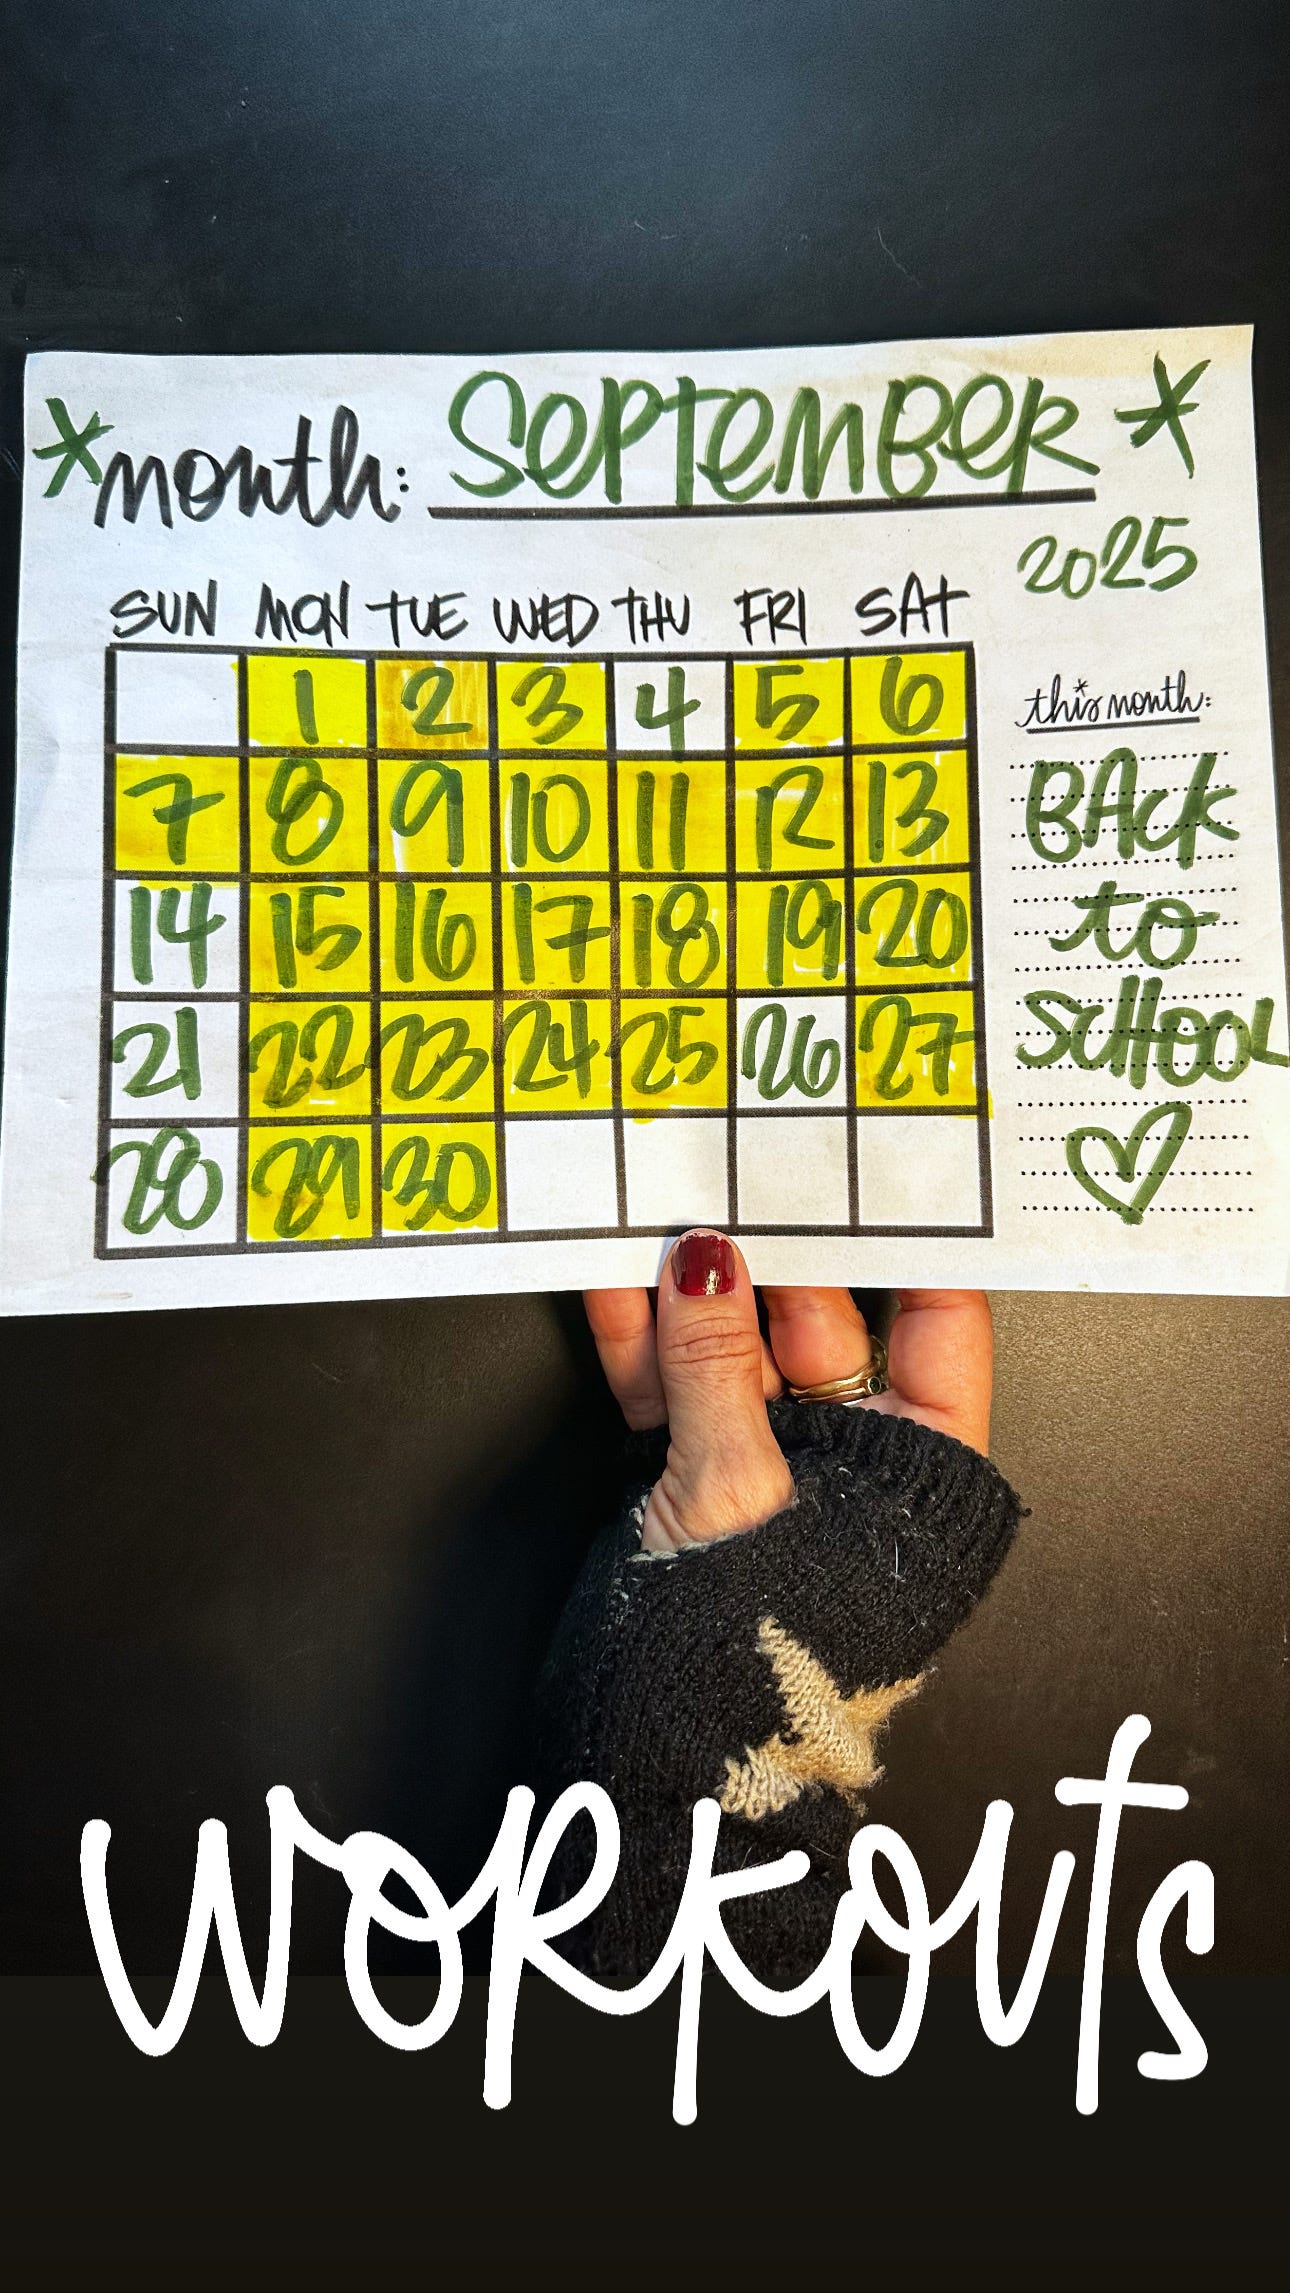 *month: September *
2025
SUN MON TUE WED THU FRI SAT
1 2 3 4 5 6
7 8 9 10 11 12 13
14 15 16 17 18 19 20
21 22 23 24 25 26 27
28 29 30
this month:
BACK
to
SCHOOL
♡
WORKOUTS